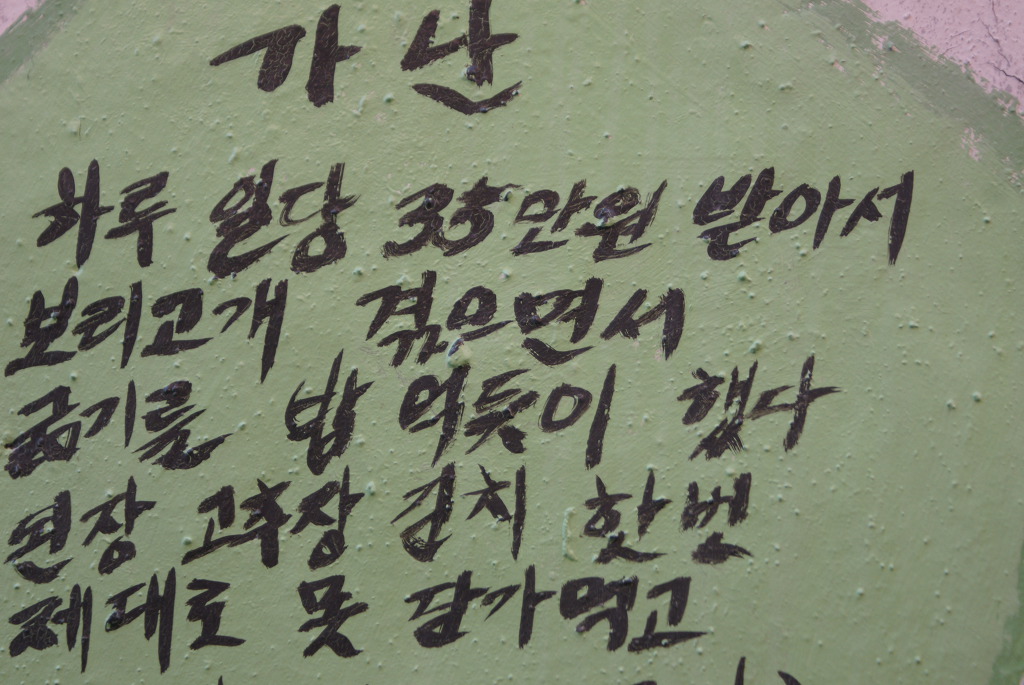 가난
하루 일당 35만원 받아서
보리고개 겪으면서
굶기를 밥 먹듯이 했다
된장 고추장 김치 한번
제대로 못 담가먹고